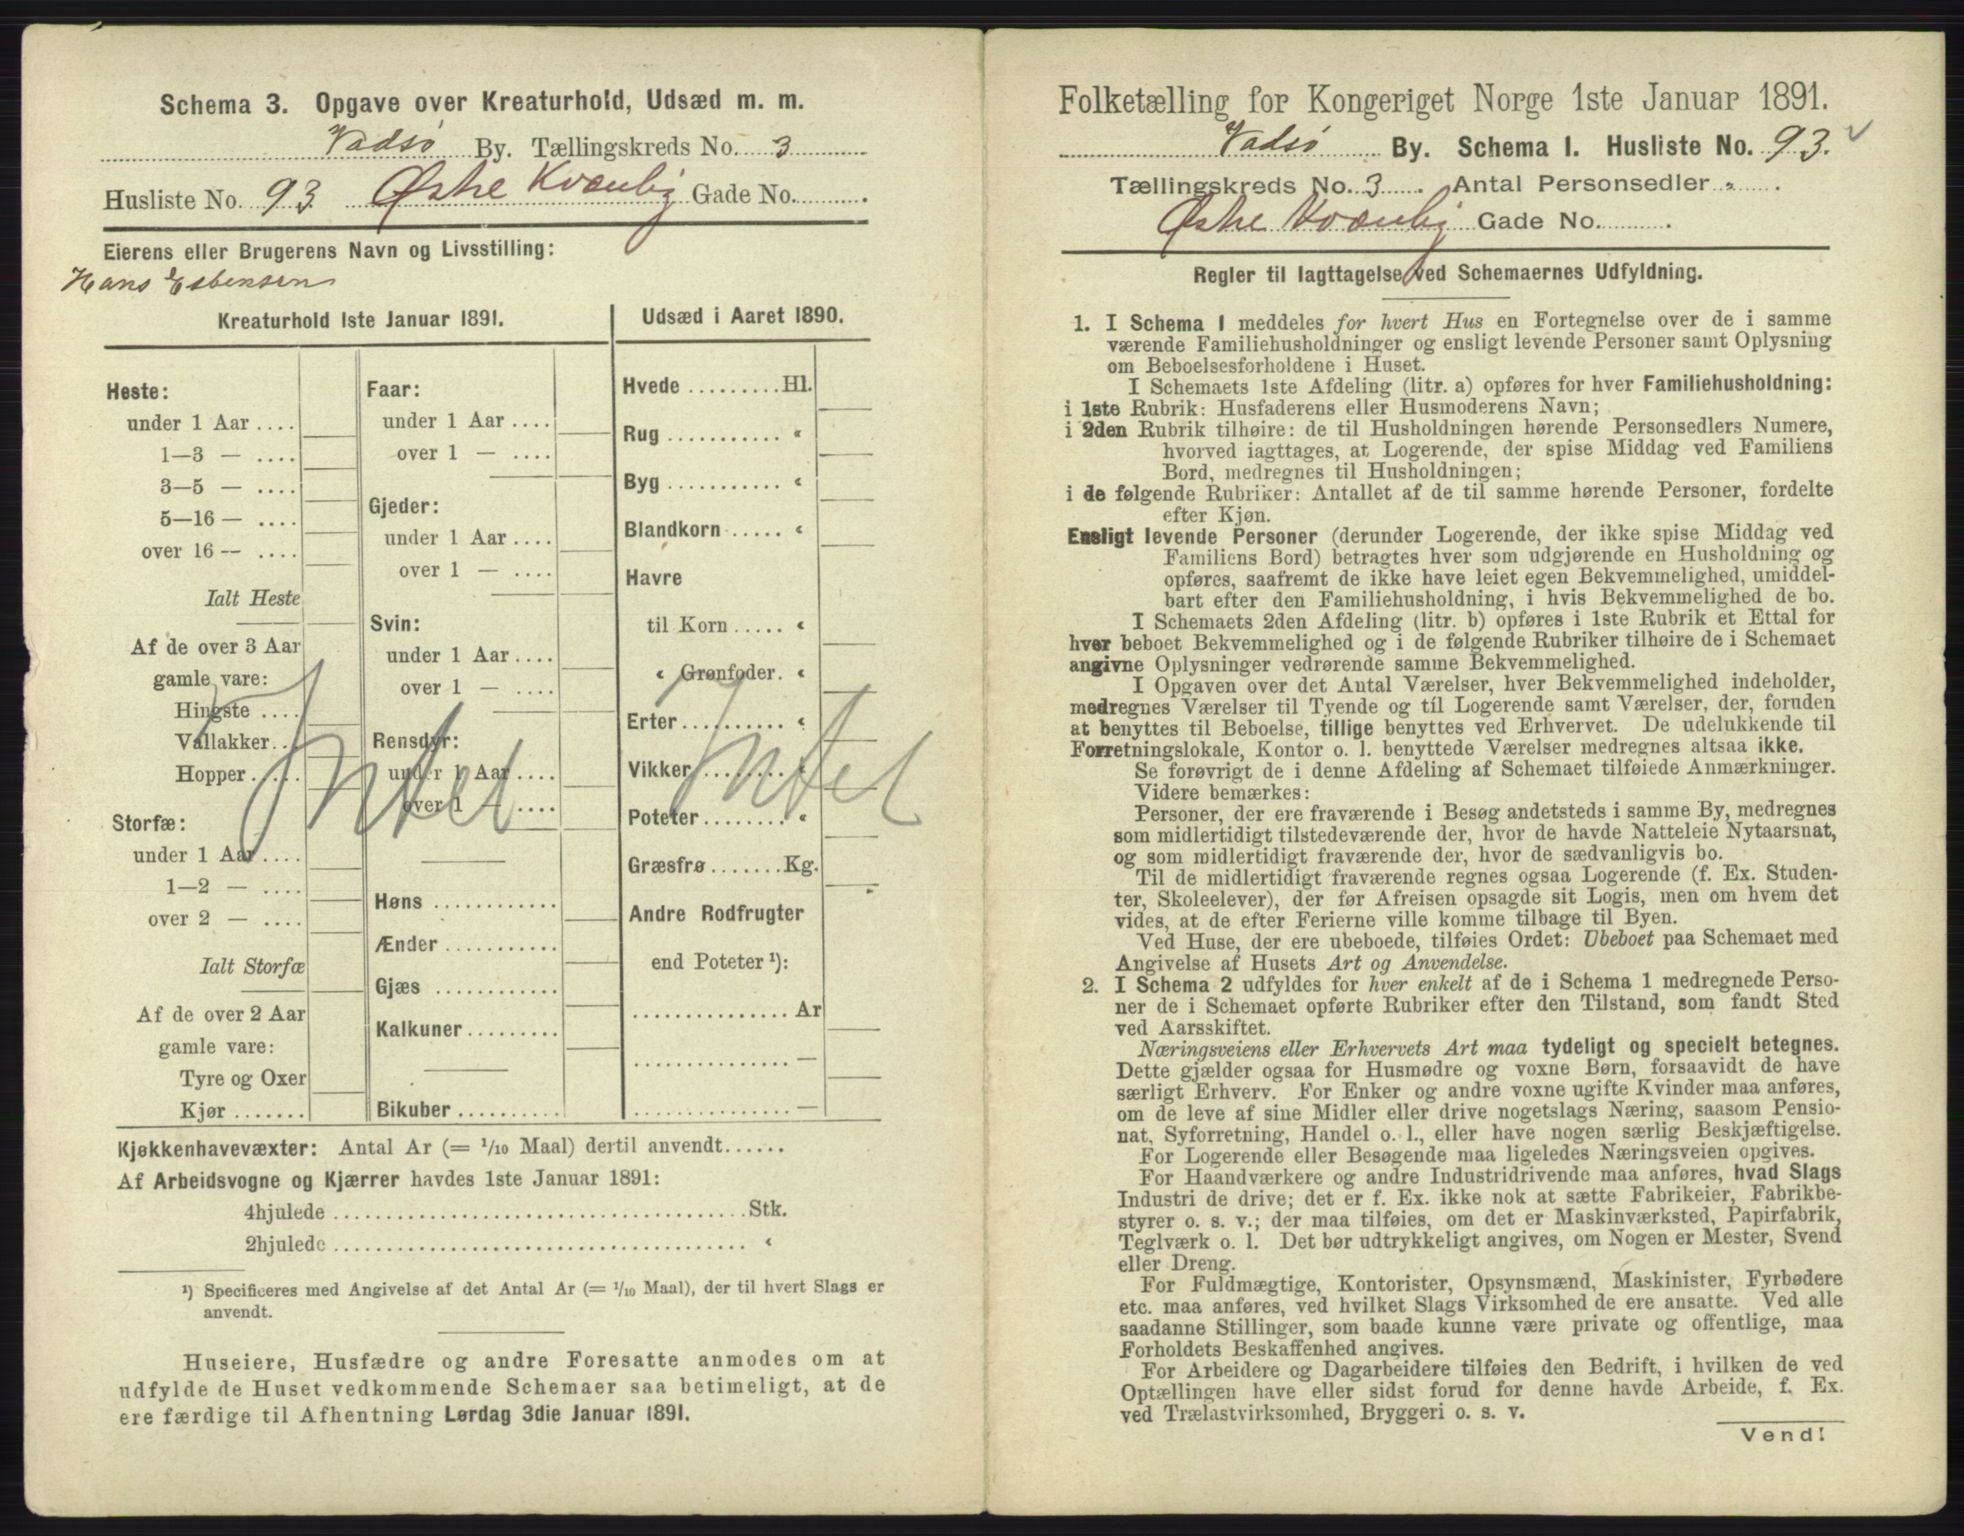 Schema 3. Opgave over Kreaturhold, Udsæd m. m.
Vadsø By. Tællingskreds No. 3
Husliste No. 93 Østre Kvænby Gade No. .
Eierens eller Brugerens Navn og Livsstilling:
Hans Esbensen
Kreaturhold 1ste Januar 1891.
Heste:
under 1 Aar ....
1—3 — ....
3—5 — ....
5—16 — ....
over 16 — ....
Ialt Heste
Af de over 3 Aar
gamle vare:
Hingste ....
Vallakker..
Hopper.....
Storfæ:
under 1 Aar ....
1—2 — ....
over 2 — ....
Ialt Storfæ
Af de over 2 Aar
gamle vare:
Tyre og Oxer
Kjør .......
Faar:
under 1 Aar ....
over 1 — ....
Gjeder:
under 1 Aar ....
over 1 — ....
Svin:
under 1 Aar ....
over 1 — ....
Rensdyr:
under 1 Aar ....
over 1 — ....
Intet
Høns ............
Ænder ...........
Gjæs ............
Kalkuner.........
Bikuber..........
Udsæd i Aaret 1890.
Hvede .........Hl.
Rug ........... "
Byg ........... "
Blandkorn ..... "
Havre
til Korn ..... "
" Grønfoder. "
Erter .......... "
Vikker ......... "
Poteter ........ "
Intet
Græsfrø .......Kg.
Andre Rodfrugter
end Poteter ¹):
............... Ar
............... —
............... —
Kjøkkenhavevæxter: Antal Ar (= 1/10 Maal) dertil anvendt......
Af Arbeidsvogne og Kjærrer havdes 1ste Januar 1891:
4hjulede ....................................... Stk.
2hjulede ....................................... "
¹) Specificeres med Angivelse af det Antal Ar (= 1/10 Maal), der til hvert Slags er
anvendt.
Huseiere, Husfædre og andre Foresatte anmodes om at
udfylde de Huset vedkommende Schemaer saa betimeligt, at de
ere færdige til Afhentning Lørdag 3die Januar 1891.
Folketælling for Kongeriget Norge 1ste Januar 1891.
Vadsø By. Schema 1. Husliste No. 93.
Tællingskreds No. 3. Antal Personsedler " .
Østre Kvænby Gade No. .
Regler til Iagttagelse ved Schemaernes Udfyldning.
1. I Schema 1 meddeles for hvert Hus en Fortegnelse over de i samme
værende Familiehusholdninger og ensligt levende Personer samt Oplysning
om Beboelsesforholdene i Huset.
I Schemaets 1ste Afdeling (litr. a) opføres for hver Familiehusholdning:
i 1ste Rubrik: Husfaderens eller Husmoderens Navn;
i 2den Rubrik tilhøire: de til Husholdningen hørende Personsedlers Numere,
hvorved iagttages, at Logerende, der spise Middag ved Familiens
Bord, medregnes til Husholdningen;
i de følgende Rubriker: Antallet af de til samme hørende Personer, fordelte
efter Kjøn.
Ensligt levende Personer (derunder Logerende, der ikke spise Middag ved
Familiens Bord) betragtes hver som udgjørende en Husholdning og
opføres, saafremt de ikke have leiet egen Bekvemmelighed, umiddel-
bart efter den Familiehusholdning, i hvis Bekvemmelighed de bo.
I Schemaets 2den Afdeling (litr. b) opføres i 1ste Rubrik et Ettal for
hver beboet Bekvemmelighed og i de følgende Rubriker tilhøire de i Schemaet
angivne Oplysninger vedrørende samme Bekvemmelighed.
I Opgaven over det Antal Værelser, hver Bekvemmelighed indeholder,
medregnes Værelser til Tyende og til Logerende samt Værelser, der, foruden
at benyttes til Beboelse, tillige benyttes ved Erhvervet. De udelukkende til
Forretningslokale, Kontor o. l. benyttede Værelser medregnes altsaa ikke.
Se forøvrigt de i denne Afdeling af Schemaet tilføiede Anmærkninger.
Videre bemærkes:
Personer, der ere fraværende i Besøg andetsteds i samme By, medregnes
som midlertidigt tilstedeværende der, hvor de havde Natteleie Nytaarsnat,
og som midlertidigt fraværende der, hvor de sædvanligvis bo.
Til de midlertidigt fraværende regnes ogsaa Logerende (f. Ex. Studen-
ter, Skoleelever), der før Afreisen opsagde sit Logis, men om hvem det
vides, at de efter Ferierne ville komme tilbage til Byen.
Ved Huse, der ere ubeboede, tilføies Ordet: Ubeboet paa Schemaet med
Angivelse af Husets Art og Anvendelse.
2. I Schema 2 udfyldes for hver enkelt af de i Schema 1 medregnede Perso-
ner de i Schemaet opførte Rubriker efter den Tilstand, som fandt Sted
ved Aarsskiftet.
Næringsveiens eller Erhvervets Art maa tydeligt og specielt betegnes.
Dette gjælder ogsaa for Husmødre og voxne Børn, forsaavidt de have
særligt Erhverv. For Enker og andre voxne ugifte Kvinder maa anføres,
om de leve af sine Midler eller drive nogetslags Næring, saasom Pensio-
nat, Syforretning, Handel o. l., eller have nogen særlig Beskjæftigelse.
For Logerende eller Besøgende maa ligeledes Næringsveien opgives.
For Haandværkere og andre Industridrivende maa anføres, hvad Slags
Industri de drive; det er f. Ex. ikke nok at sætte Fabrikeier, Fabrikbe-
styrer o. s. v.; der maa tilføies, om det er Maskinværksted, Papirfabrik,
Teglværk o. l. Det bør udtrykkeligt angives, om Nogen er Mester, Svend
eller Dreng.
For Fuldmægtige, Kontorister, Opsynsmænd, Maskinister, Fyrbødere
etc. maa anføres, ved hvilket Slags Virksomhed de ere ansatte. Ved alle
saadanne Stillinger, som baade kunne være private og offentlige, maa
Forholdets Beskaffenhed angives.
For Arbeidere og Dagarbeidere tilføies den Bedrift, i hvilken de ved
Optællingen have eller sidst forud for denne havde Arbeide, f. Ex.
ved Trælastvirksomhed, Bryggeri o. s. v.
Vend!